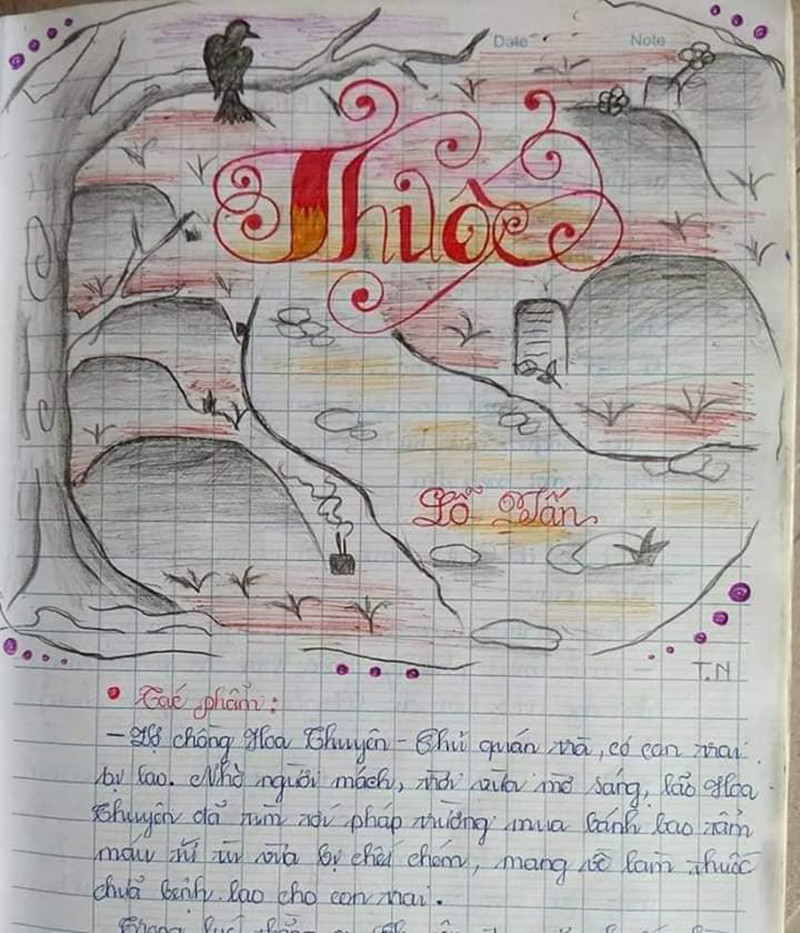 Date
Note
Thuốc
Lỗ Tấn
T.N
• Tác phẩm:
- Vợ chồng Hoa Thuyên - Chủ quán trà, có con trai
bị lao. Nhờ người mách, trời vừa mờ sáng, lão Hoa
Thuyên đã tìm tới pháp trường mua bánh bao tẩm
máu tử tù vừa bị chém, mang về làm thuốc
chữa bệnh lao cho con trai.